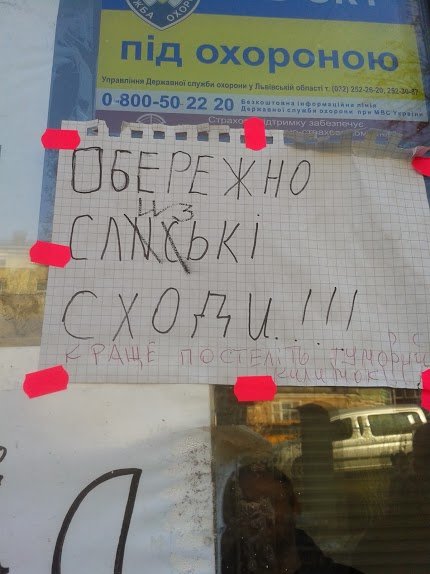 ЖБА ОХОРО
під охороною
Управління Державної служби охорони у Львівській області т. (072) 252-26-20, 252-30-87
0-800-50-22 20 Безкоштовна інформаційна лінія
Державної служби охорони при МВС України
Страхову підтримку забезпечує
ОБЕРЕЖНО
из
СЛИСЬКІ
СХОДИ!!!
КРАЩЕ ПОСТЕЛІТЬ ГУМОВИЙ
КИЛИМОК!!!